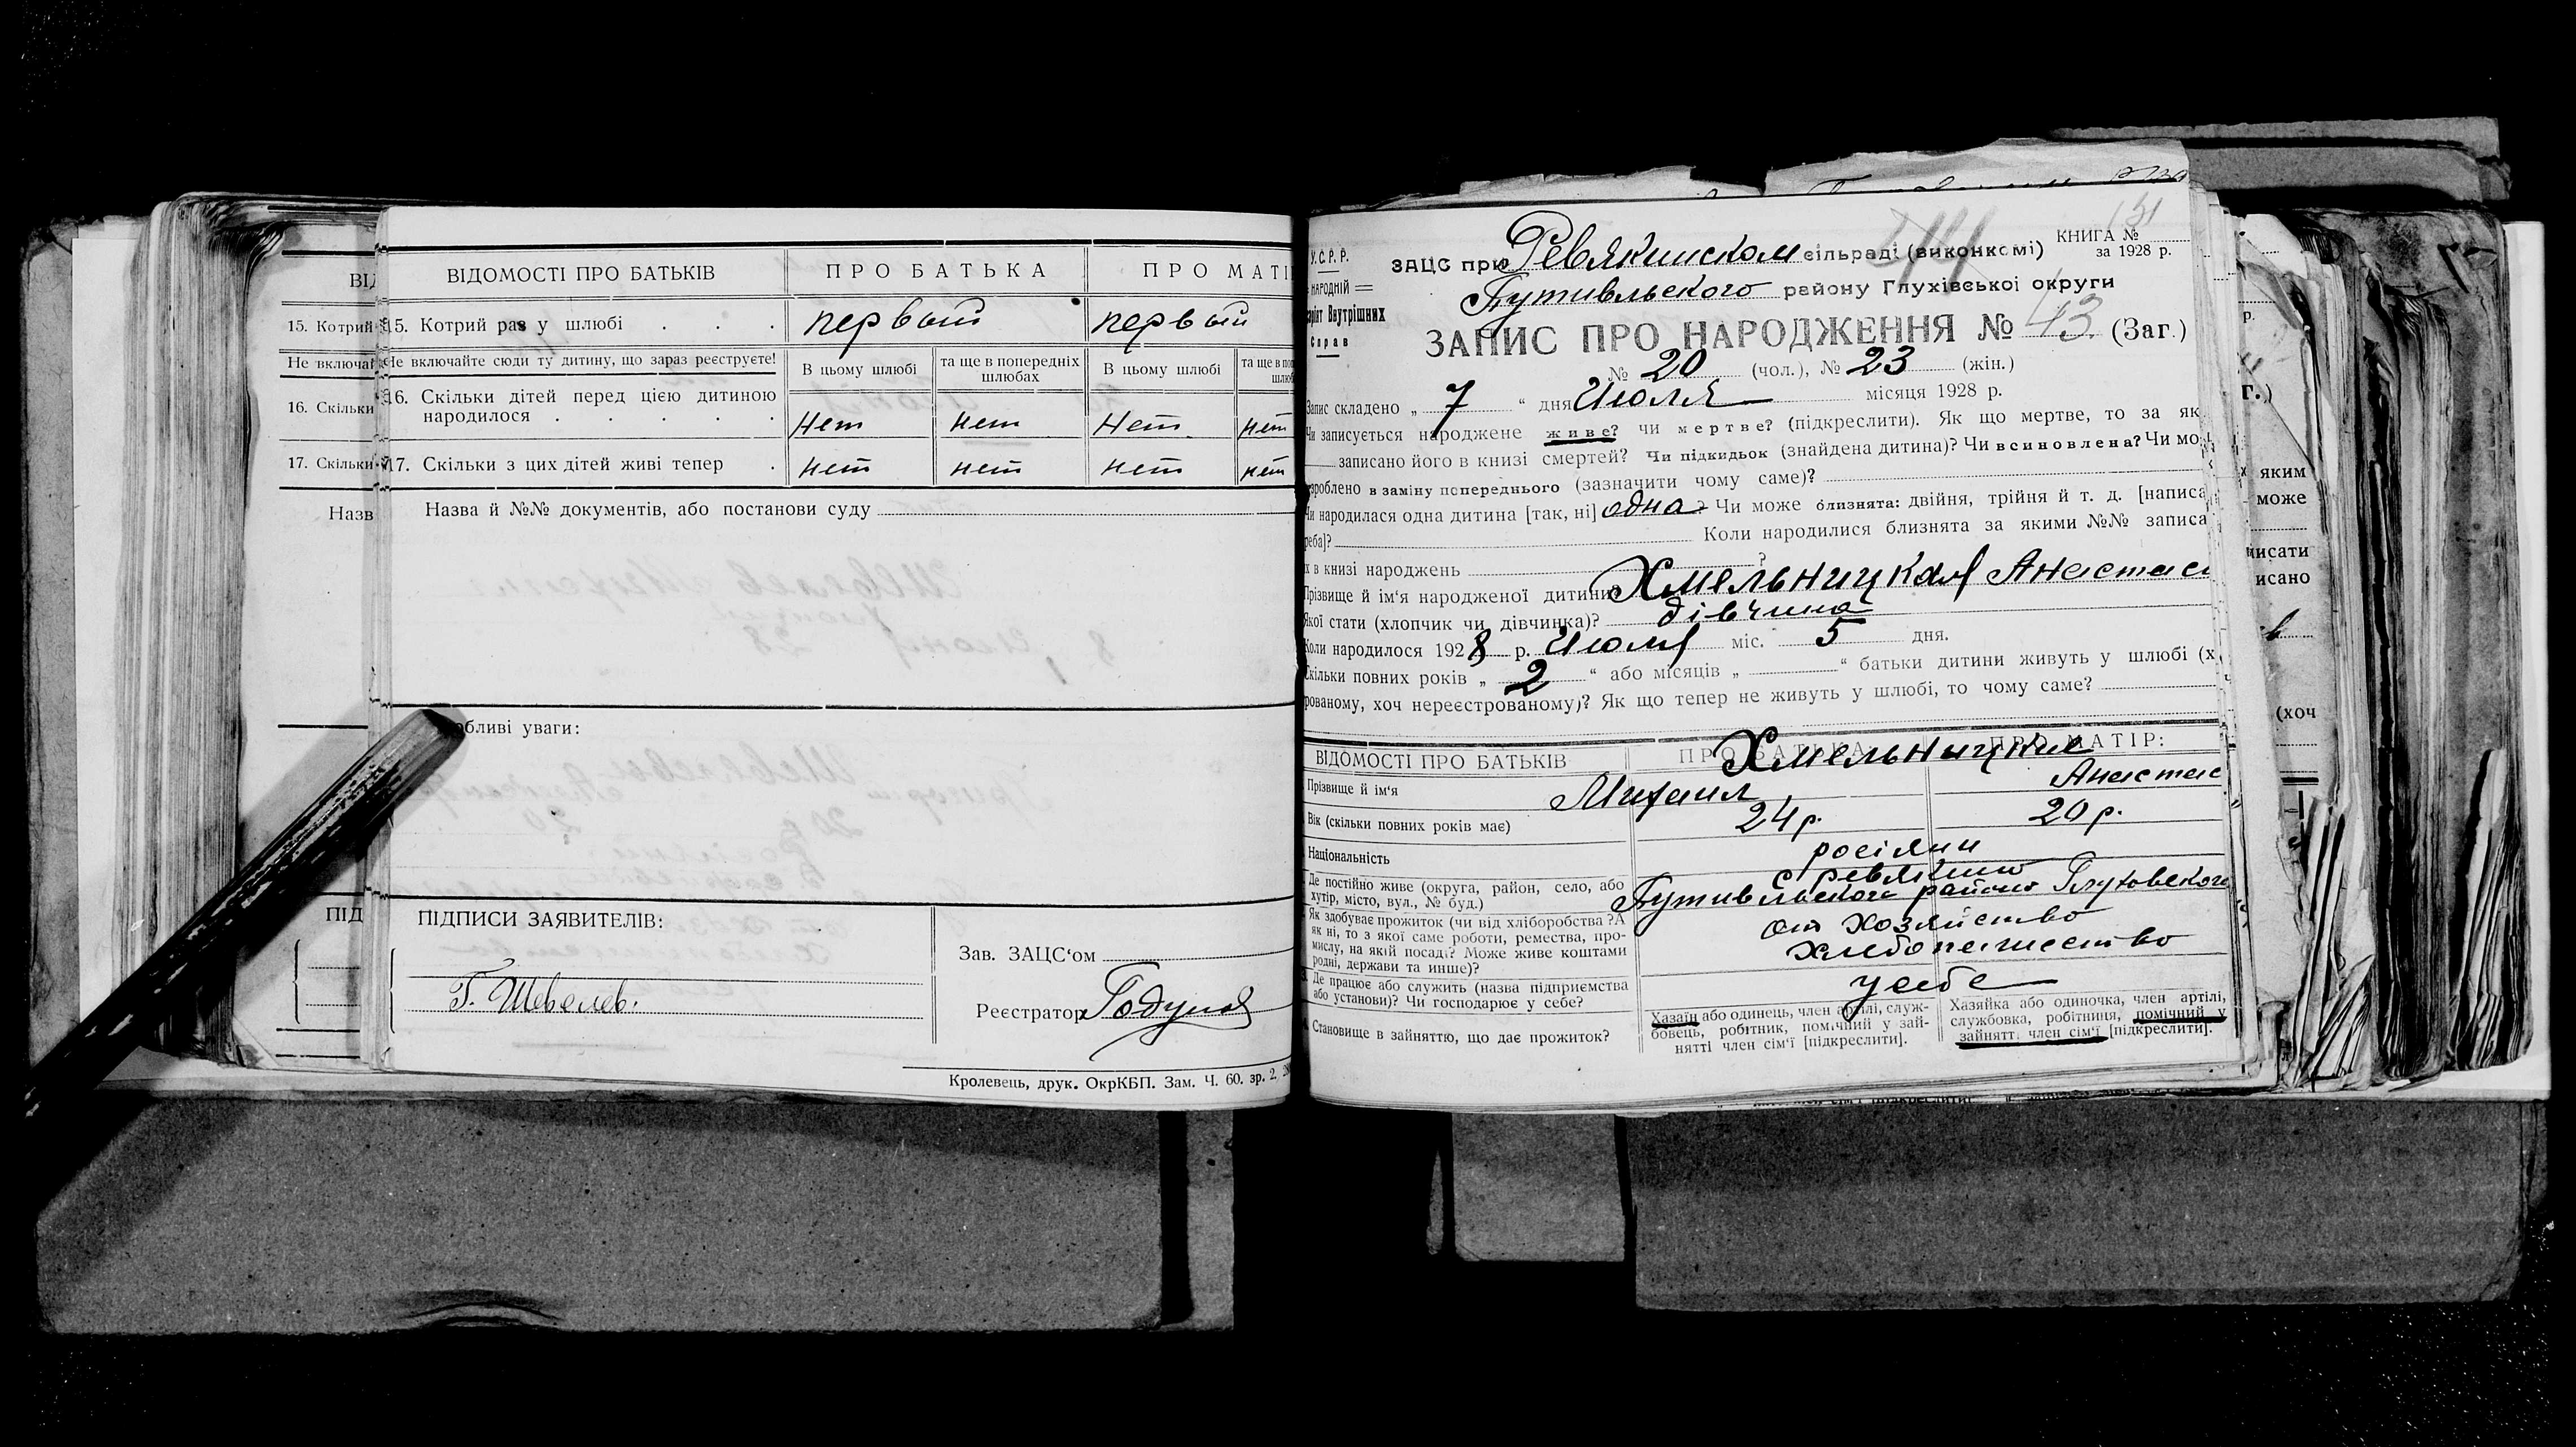 ВІДОМОСТІ ПРО БАТЬКІВ ПРО БАТЬКА ПРО МАТІ
15. Котрий раз у шлюбі . . . первый первый
Не включайте сюди ту дитину, що зараз реєструєте! В цьому шлюбі та ще в попередніх шлюбах В цьому шлюбі та ще в поп шлюб
16. Скільки дітей перед цією дитиною
народилося . . . . . Нет нет Нет. нет
17. Скільки з цих дітей живі тепер . нет нет нет нет
Назва й №№ документів, або постанови суду
обливі уваги:
ПІДПИСИ ЗАЯВИТЕЛІВ:
Г. Шевелев.
Зав. ЗАЦС'ом
Реєстратор Годунов
Кролевець, друк. ОкрКБП. Зам. Ч. 60. зр. 2.
15. Котрий
Не включай
16. Скільки
17. Скільки
Назв
ПІД
У.С.Р.Р.
НАРОДНІЙ
Внутрішних
Справ
КНИГА № 151
за 1928 р.
ЗАЦС при Ревякинском сільраді (виконкомі)
Путивльского району Глухівської округи
ЗАПИС ПРО НАРОДЖЕННЯ № 43 (Заг.)
№ 20 (чол.), № 23 (жін.)
Запис складено „ 7 “ дня Июля місяця 1928 р.
Чи записується народжене живе? чи мертве? (підкреслити). Як що мертве, то за як
записано його в книзі смертей? Чи підкидьок (знайдена дитина)? Чи всиновлена? Чи мо
зроблено в заміну попереднього (зазначити чому саме)?
Чи народилася одна дитина [так, ні] одна Чи може близнята: двійня, трійня й т. д. [написа
реба]? Коли народилися близнята за якими №№ записа
х в книзі народжень ?
Прізвище й ім'я народженої дитини Хмельницкая Анастаси
Якої стати (хлопчик чи дівчинка)? дівчина
Коли народилося 1928 р. Июля міс. 5 дня.
Скільки повних років „ 2 “ або місяців „ “ батьки дитини живуть у шлюбі (х
рованому, хоч нереєстрованому)? Як що тепер не живуть у шлюбі, то чому саме?
ВІДОМОСТІ ПРО БАТЬКІВ ПРО БАТЬКА ПРО МАТІР:
Хмельницкие
Прізвище й ім'я Михаил Анастас
Вік (скільки повних років має) 24 р. 20 р.
Національність росіяни
Де постійно живе (округа, район, село, або с Ревякино
хутір, місто, вул., № буд.) Путивльского района Глуховского
Як здобуває прожиток (чи від хліборобства? А
як ні, то з якої саме роботи, ремества, про- от хозяйство
мислу, на якій посаді? Може живе коштами хлебопашество
родні, держави та инше)?
Де працює або служить (назва підприємства у себе
або установи)? Чи господарює у себе?
Становище в зайняттю, що дає прожиток?
Хазаїн або одинець, член артілі, служ-
бовець, робітник, помічний у зай-
нятті член сім'ї [підкреслити].
Хазяйка або одиночка, член артілі,
службовка, робітниця, помічний у
зайнятті член сім'ї [підкреслити].
яким
може
писати
исано
(хоч